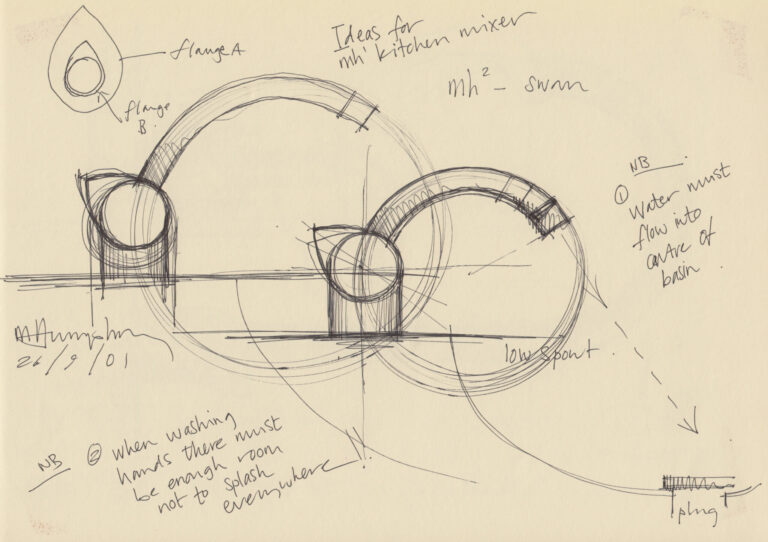 flange A
flange
B.
Ideas for
mh' kitchen mixer
mh² - swan
NB
① Water must
flow into
centre of
basin.
26/9/01
low spout.
NB ② when washing
hands there must
be enough room
not to splash
everywhere
plug